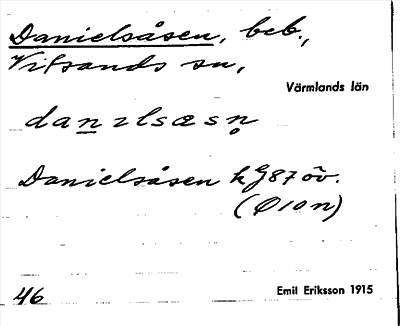 Danielsåsen, beb.,
Vitsands sn,
Värmlands län
danılsæsn̥
Danielsåsen k G87 öv.
(Ø10n)
46
Emil Eriksson 1915